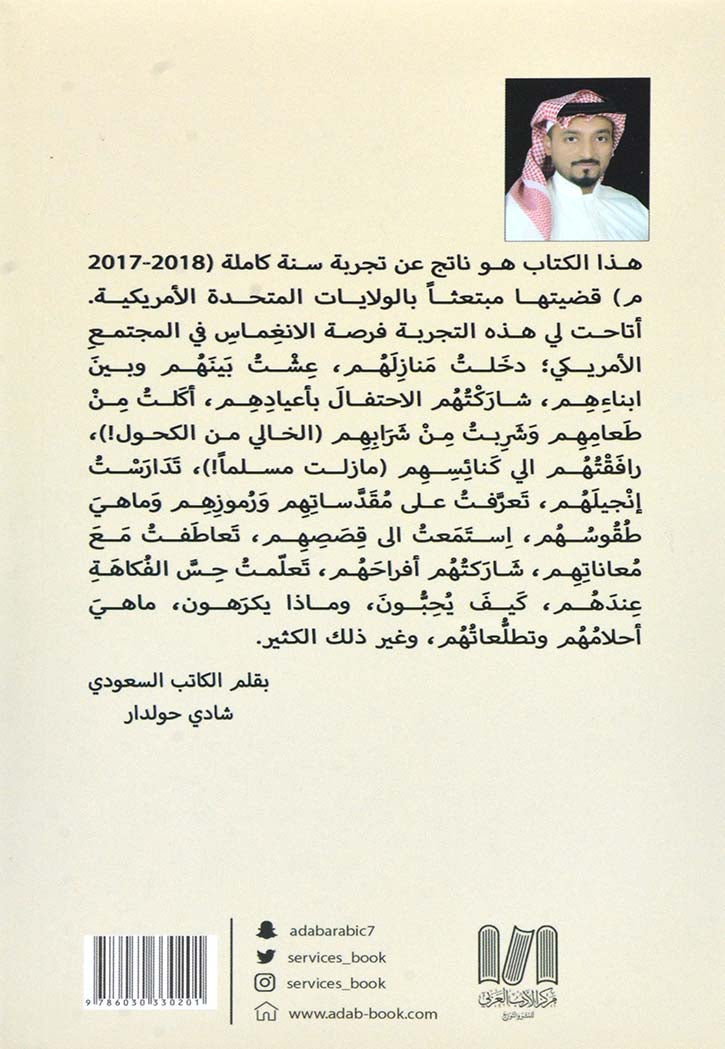 هذا الكتاب هو ناتج عن تجربة سنة كاملة (2018-2017
م) قضيتها مبتعثاً بالولايات المتحدة الأمريكية.
أتاحت لي هذه التجربة فرصة الانغِماسِ في المجتمعِ
الأمريكي؛ دخَلتُ مَنازِلَهُم، عِشْتُ بَينَهُم وبينَ
ابناءِهِم، شارَكْتُهُم الاحتفالَ بأعيادِهِم، أكَلتُ مِنْ
طَعامِهِم وَشَرِبتُ مِنْ شَرَابِهِم (الخالي من الكحول!)،
رافَقْتُهُم الي كَنائِسِهِم (مازلت مسلماً!)، تَدَارَسْتُ
إنْجيلَهُم، تَعرَّفتُ على مُقَدَّساتِهِم وَرُموزِهِم وَماهيَ
طُقُوسُهُم، اِستَمَعتُ الى قِصَصِهِم، تَعاطَفتُ مَعَ
مُعاناتِهِم، شارَكتُهُم أفراحَهُم، تَعلّمتُ حِسَّ الفُكاهَةِ
عِندَهُم، كَيفَ يُحِبُّونَ، وماذا يكرَهون، ماهيَ
أحلامُهُم وتطلُّعاتُهُم، وغير ذلك الكثير.
بقلم الكاتب السعودي
شادي حولدار
adabarabic7
services_book
services_book
www.adab-book.com
مركز الأدب العربي
للنشر والتوزيع
9 786030 330201